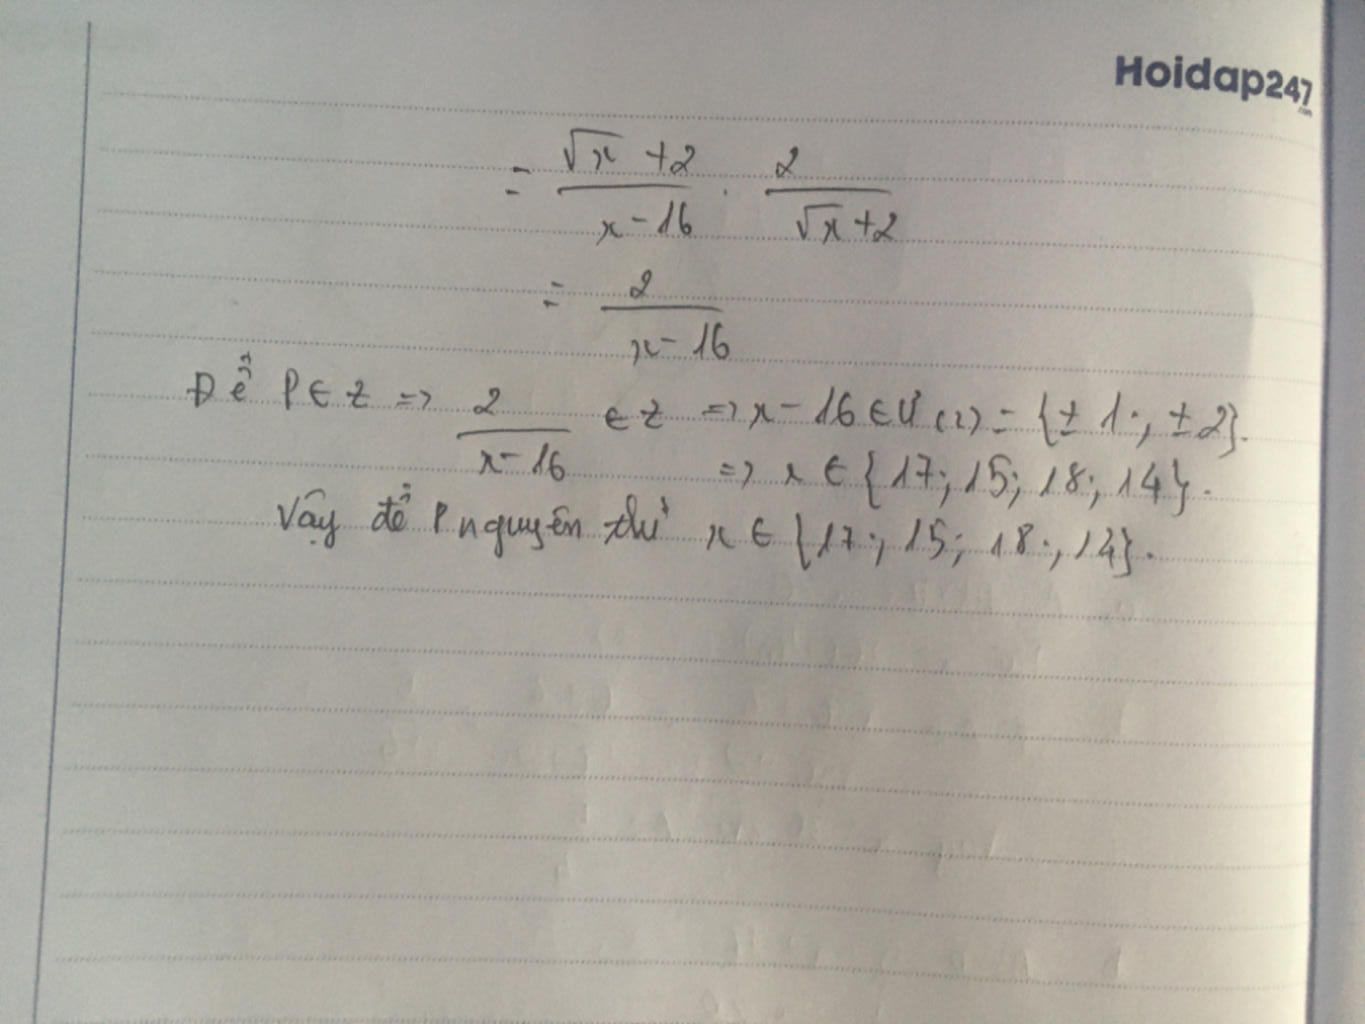 Hoidap247
.com
= (√x + 2)/(x - 16) . 2/(√x + 2)
= 2/(x - 16)
Để P ∈ Z => 2/(x - 16) ∈ Z => x - 16 ∈ Ư(2) = {± 1; ± 2}.
=> x ∈ {17; 15; 18; 14}.
Vậy để P nguyên thì x ∈ {17; 15; 18; 14}.